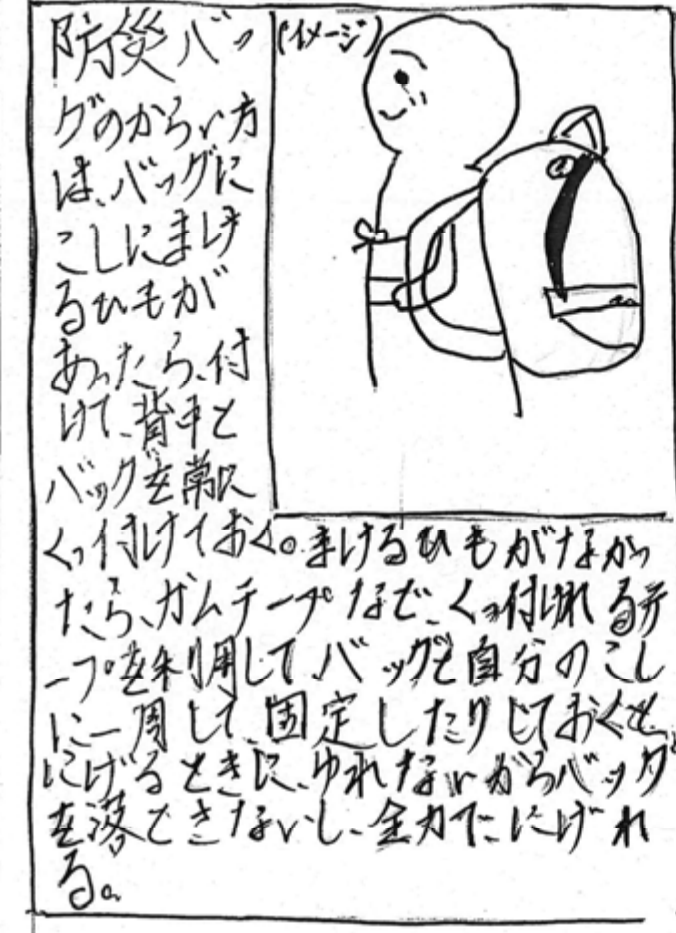 防災バッ
グのからい方
は、バッグに
こしにまけ
るひもが
あったら、付
けて、背中と
バッグを常に
くっ付けておく。まけるひもがなかっ
たら、ガムテープなど、くっ付けれるテ
ープを利用して、バッグを自分のこし
に一周して、固定したりしておくと、
にげるときに、ゆれないからバッグ
を落とさないし、全力で、にげれ
る。
(イメージ)